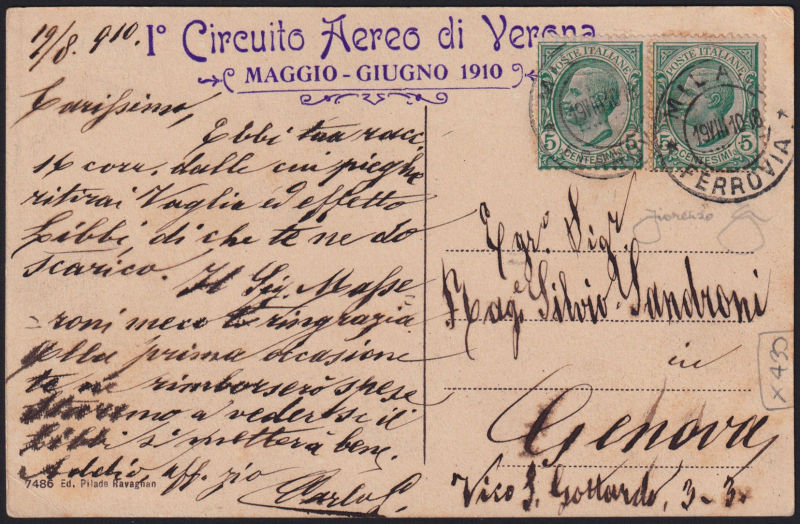 19/8. 910.
Iº Circuito Aereo di Verona
MAGGIO - GIUGNO 1910
POSTE ITALIANE
5 CENTESIMI 5
POSTE ITALIANE
5 CENTESIMI 5
MILANO
19 VIII 10
* FERROVIA *
Carissimo,
Ebbi tua racc.
16 corr. dalle cui pieghe
ritirai Vaglia ed effetto
Libbi di che te ne do
scarico. Il Sig. Masse
=roni meco ti ringrazia
alla prima occasione
te ne rimborserò spese
a vedere se il
Libbi si metterà bene.
Addio aff. zio
Carlo
7486 Ed. Pilade Ravagnan
Fiorenzo
Egr. Sigr.
Rag. Silvio Sandroni
in
Genova
Vico S. Gottardo, 3-3.
x 430